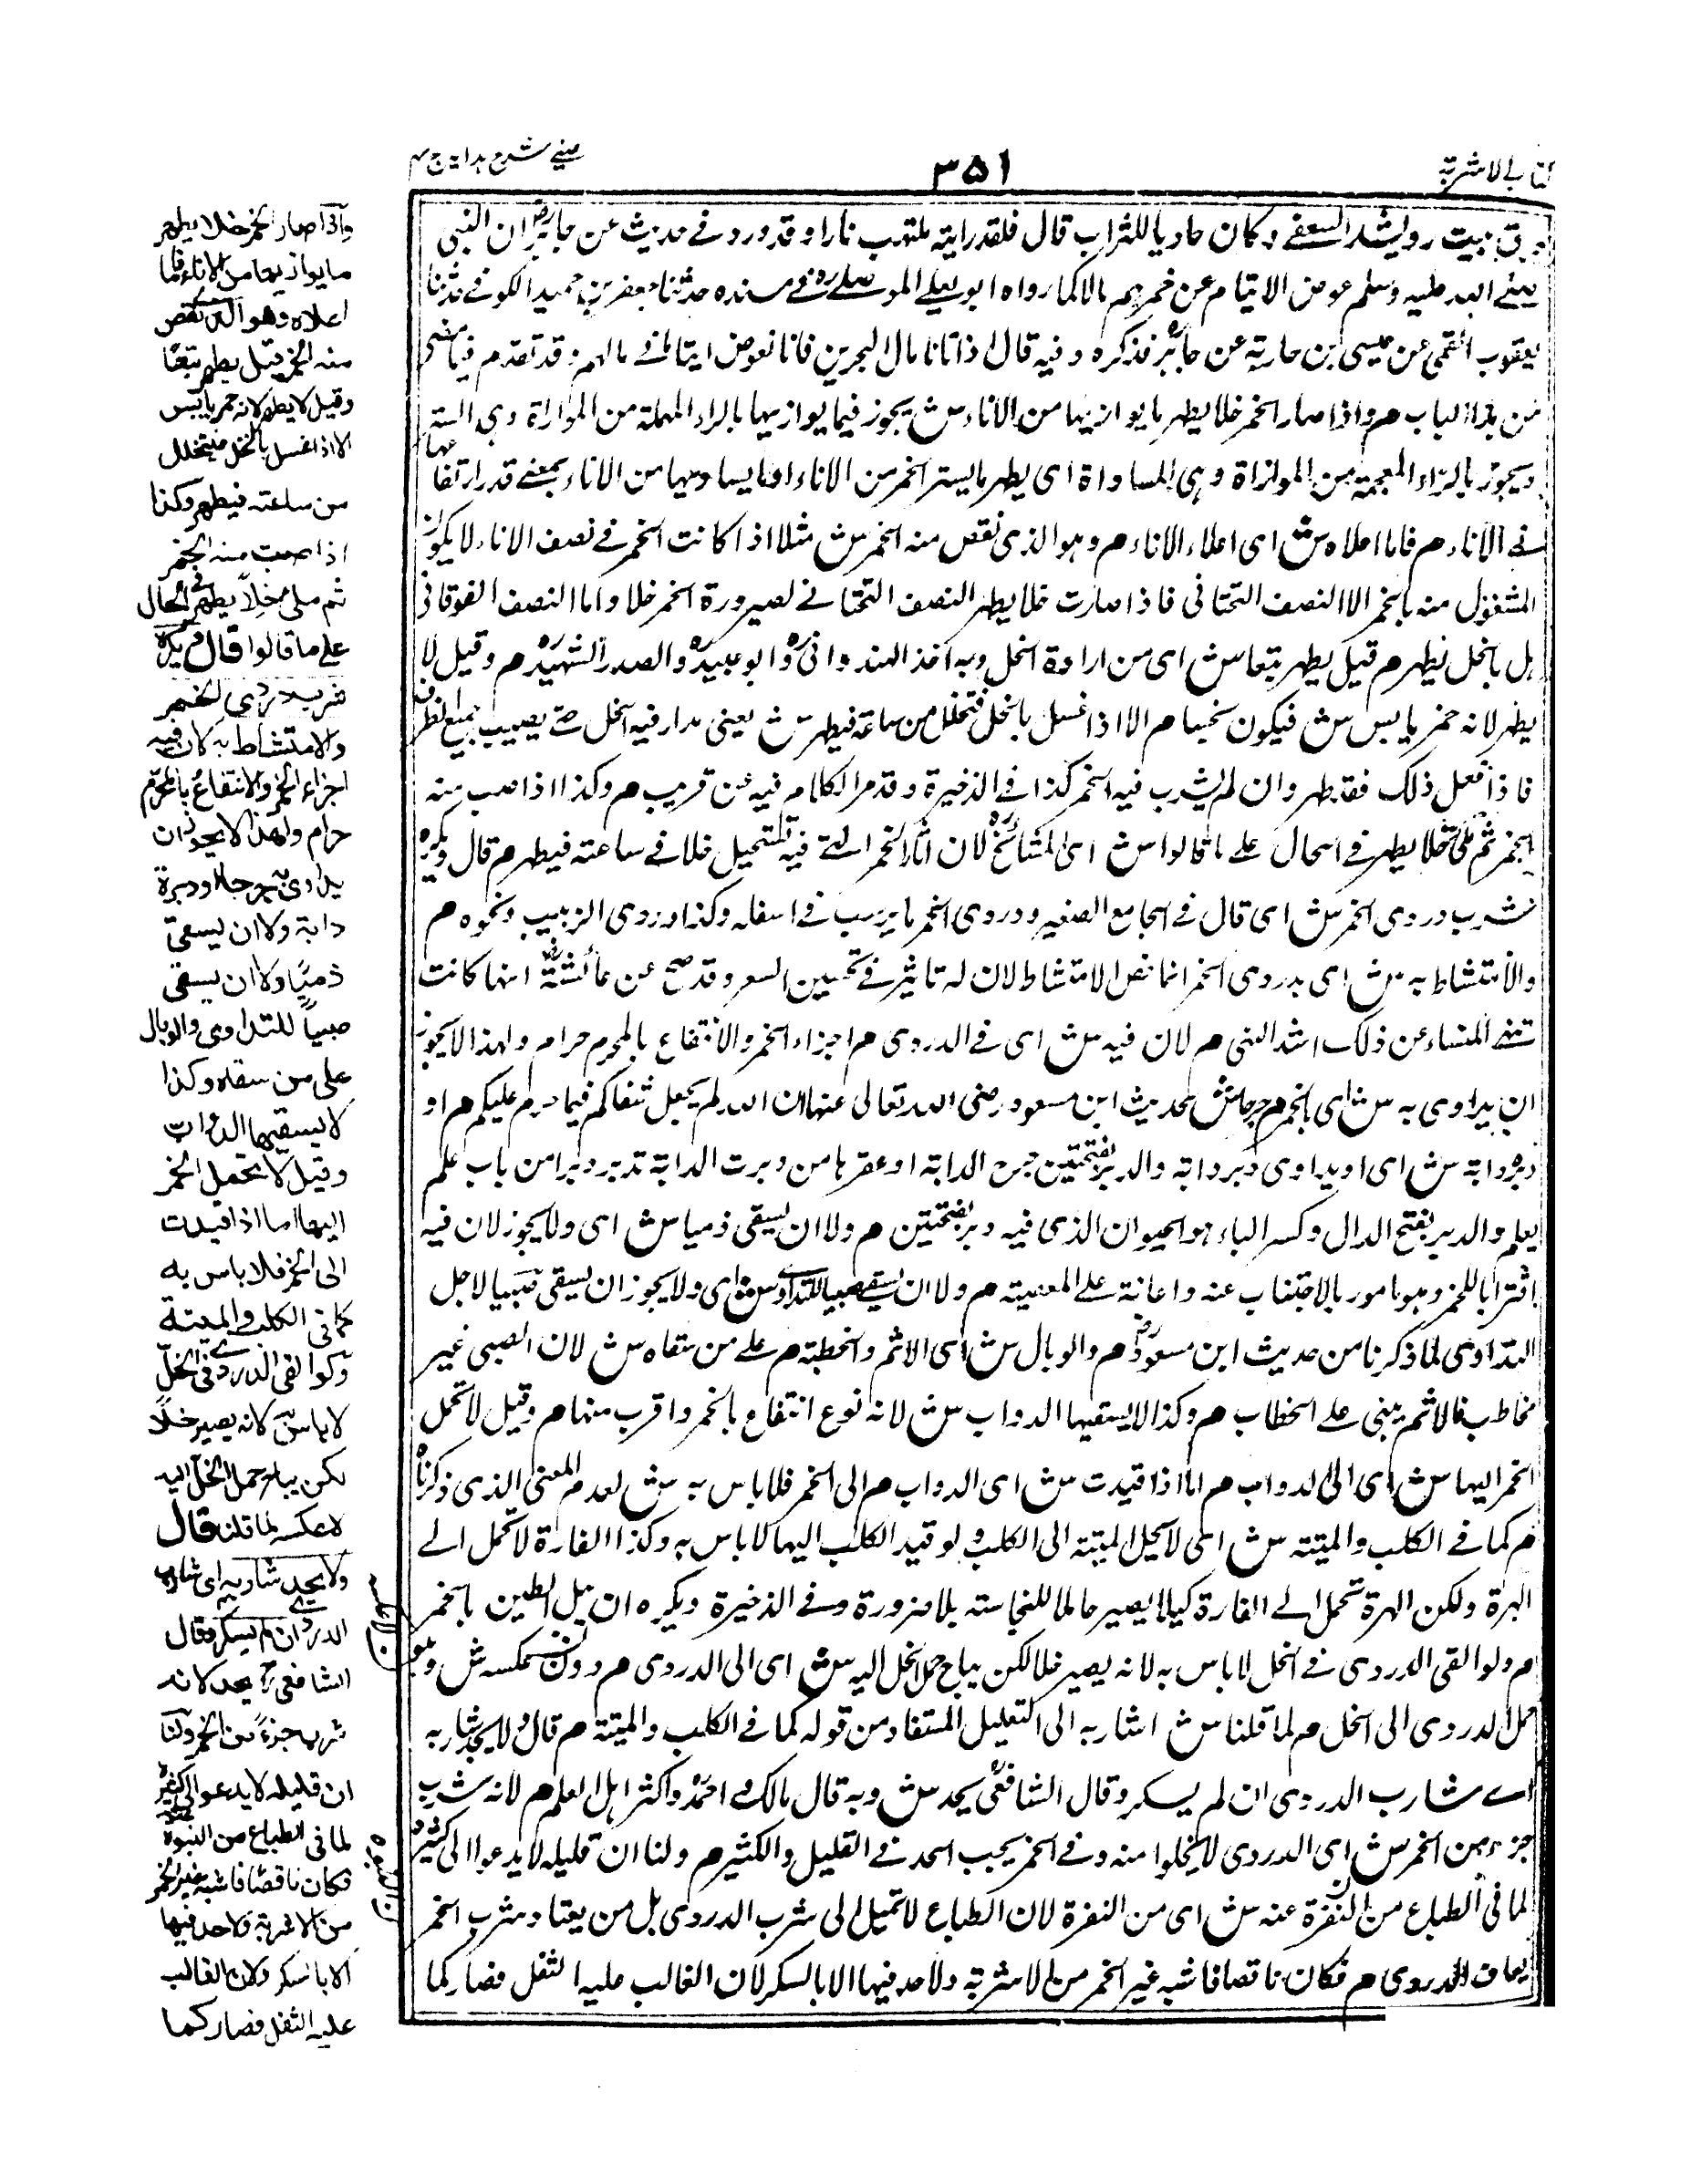 كتاب الاشربة
٣٥١
عيني شرح هداية ج ٤
حرق بيت رويشد الثقفي وكان حاديا للشراب قال فلقد رايته يلتهب نارا وقد ورد في حديث عن جابر ان النبي
صلى الله عليه وسلم عوض الايتام عن خمرهم مالا كما رواه ابو يعلى الموصلي في مسنده حدثنا جعفر بن حميد الكوفي حدثنا
يعقوب القمي عن عيسى بن حارثة عن جابر فذكره وفيه قال اذا اتانا مال البحرين فانا نعوض ايتامك مالهم وقد تقدم فيما مضى
من هذا الباب م واذا صار الخمر خلا يطهر ما يوازيها من الاناء ش يجوز فيما يوازيها بالراء المهملة من المواراة وهي الستر
ويجوز بالزاء المعجمة من الموازاة وهي المساواة اى يطهر ما يستر الخمر من الاناء او ما يساويها من الاناء بمعنى قدر ارتفاعها
في الاناء م فاما اعلاه ش اى اعلاء الاناء م وهو الذى نقص منه الخمر ش مثلا اذا كانت الخمر في نصف الاناء لا يكون
المشغول منه بالخمر الا النصف التحتانى فاذا صارت خلا يطهر النصف التحتانى لصيرورة الخمر خلا واما النصف الفوقانى
هل بالخل يطهر م قيل يطهر تبعا ش اى من اراءة الخل وبه اخذ الهندوانى وابو عبيدة والصدر الشهيد م وقيل لا
يطهر لانه خمر يابس ش فيكون نجسا م الا اذا غسل بالخل فتخلل من ساعته فيطهر ش يعنى مدار فيه الخل حتى يصيب جميع الظرف
فاذا فعل ذلك فقد طهر وان لم يشرب فيه الخمر كذا في الذخيرة وقد مر الكلام فيه عن قريب م وكذا اذا صب منه
الخمر ثم ملئ خلا يطهر في الحال على ما قالوا ش اى المشائخ لان اثار الخمر التي فيه تستحيل خلا في ساعته فيطهر م قال ويكره
شرب دردى الخمر ش اى قال في الجامع الصغير ودردى الخمر ما يرسب في اسفله وكذا دردى الزبيب ونحوه م
والامتشاط به ش اى بدردى الخمر انما نص الامتشاط لان له تاثير في تحسين الشعر وقد صح عن عائشة انها كانت
تنهى النساء عن ذلك اشد النهى م لان فيه ش اى في الدردى م اجزاء الخمر والانتفاع بالمحرم حرام ولهذا لا يجوز
ان يداوى به ش اى بالخمر م جرحا ش لحديث ابن مسعود رضى الله تعالى عنه ان الله لم يجعل شفاكم فيما حرم عليكم م او
دبرة دابة ش اى او يداوى دبر دابة والدبر بفتحتين جرح الدابة او عقرها من دبرت الدابة تدبر دبرا من باب علم
يعلم والدبر بفتح الدال وكسر الباء هو الحيوان الذى فيه دبر بفتحتين م ولا ان يسقى ذميا ش اى ولا يجوز لان فيه
اقترابا للخمر وهو مامور بالاجتناب عنه واعانة على المعصية م ولا ان يسقى صبيا للتداوى ش اى ولا يجوز ان يسقى صبيا لاجل
التداوى لما ذكرنا من حديث ابن مسعود م والوبال ش اى الاثم والخطية م على من سقاه ش لان الصبى غير
مخاطب فالاثم يبنى على الخطاب م وكذا لا يسقيها الدواب ش لانه نوع انتفاع بالخمر واقرب منها م وقيل لا تحمل
الخمر اليها ش اى الى الدواب م اما اذا قيدت ش اى الدواب م الى الخمر فلا باس به ش لعدم المعنى الذى ذكرنا
م كما في الكلب والميتة ش اى لا يحمل الميتة الى الكلب ولو قيد الكلب اليها لا باس به وكذا الفارة لا تحمل الى
الهرة ولكن الهرة تحمل الى الفارة كيلا يصير حاملا للنجاسته بلا ضرورة وفي الذخيرة ويكره ان يبل الطين بالخمر
م ولو القى الدردى في الخل لا باس به لانه يصير خلا لكن يباح حمل الخل اليه ش اى الى الدردى م دون عكسه ش وهو
حمل الدردى الى الخل م لما قلنا ش اشار به الى التعليل المستفاد من قوله كما في الكلب والميتة م قال ولا يحد شاربه
اى شارب الدردى ان لم يسكر وقال الشافعى يحد ش وبه قال مالك واحمد واكثر اهل العلم م لانه شرب
جزء من الخمر ش اى الدردى لا يخلوا منه وفي الخمر يجب الحد في القليل والكثير م ولنا ان قليله لا يدعوا الى كثيره
لما في الطباع من النفرة عنه ش اى من النفرة لان الطباع لا تميل الى شرب الدردى بل من يعتاد شرب الخمر
يعاف الدردى م فكان ناقصا فاشبه غير الخمر من الاشربة ولا حد فيها الا بالسكر لان الغالب عليه الثفل فصار كما
واذا صار الخمر خلا يطهر
ما يوازيها من الاناء فاما
اعلاه وهو الذى نقص
منه الخمر قيل يطهر تبعًا
وقيل لا يطهر لانه خمر يابس
الا اذا غسل بالخل فيتخلل
من ساعته فيطهر وكذا
اذا صب منه الخمر
ثم ملئ خلاً يطهر في الحال
على ما قالوا قال ويكره
شرب دردى الخمر
والامتشاط به لان فيه
اجزاء الخمر والانتفاع بالمحرم
حرام ولهذا لا يجوز ان
يداوى به جرحا او دبرة
دابة ولا ان يسقى
ذميًا ولا ان يسقى
صبياً للتداوى والوبال
على من سقاه وكذا
لا يسقيها الدواب
وقيل لا تحمل الخمر
اليها اما اذا قيدت
الى الخمر فلا باس به
كما في الكلب والميتة
ولو القى الدردى في الخل
لا باس به لانه يصير خلاً
لكن يباح حمل الخل اليه
لا عكسه لما قلنا قال
ولا يحد شاربه اى شارب
الدردى ان لم يسكر وقال
الشافعى يحد لانه
شرب جزءً من الخمر ولنا
ان قليله لا يدعو الى كثيره
لما في الطباع من النبوة عنه
فكان ناقصًا فاشبه غير الخمر
من الاشربة ولا حد فيها
الا بالسكر ولان الغالب
عليه الثفل فصار كما